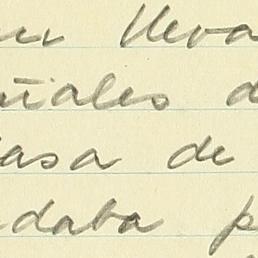 lleva
ñales d
asa de
daba p